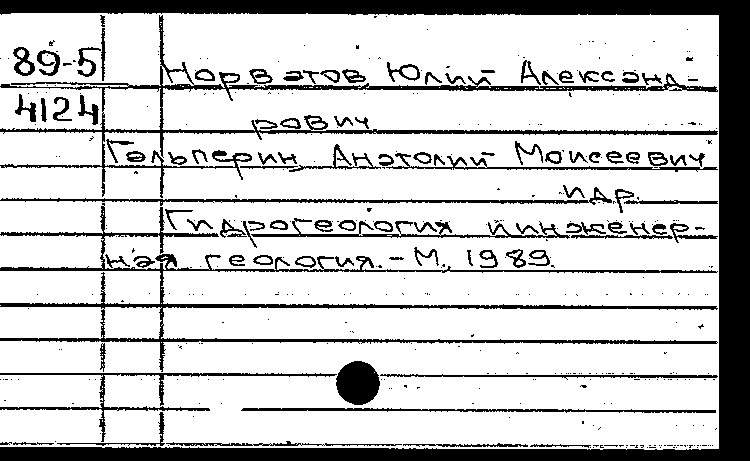 89-5 Норватов Юлий Александ-
4124 рович
Гальперин Анатолий Моисеевич
и др.
Гидрогеология и инженер-
ная геология. - М., 1989.